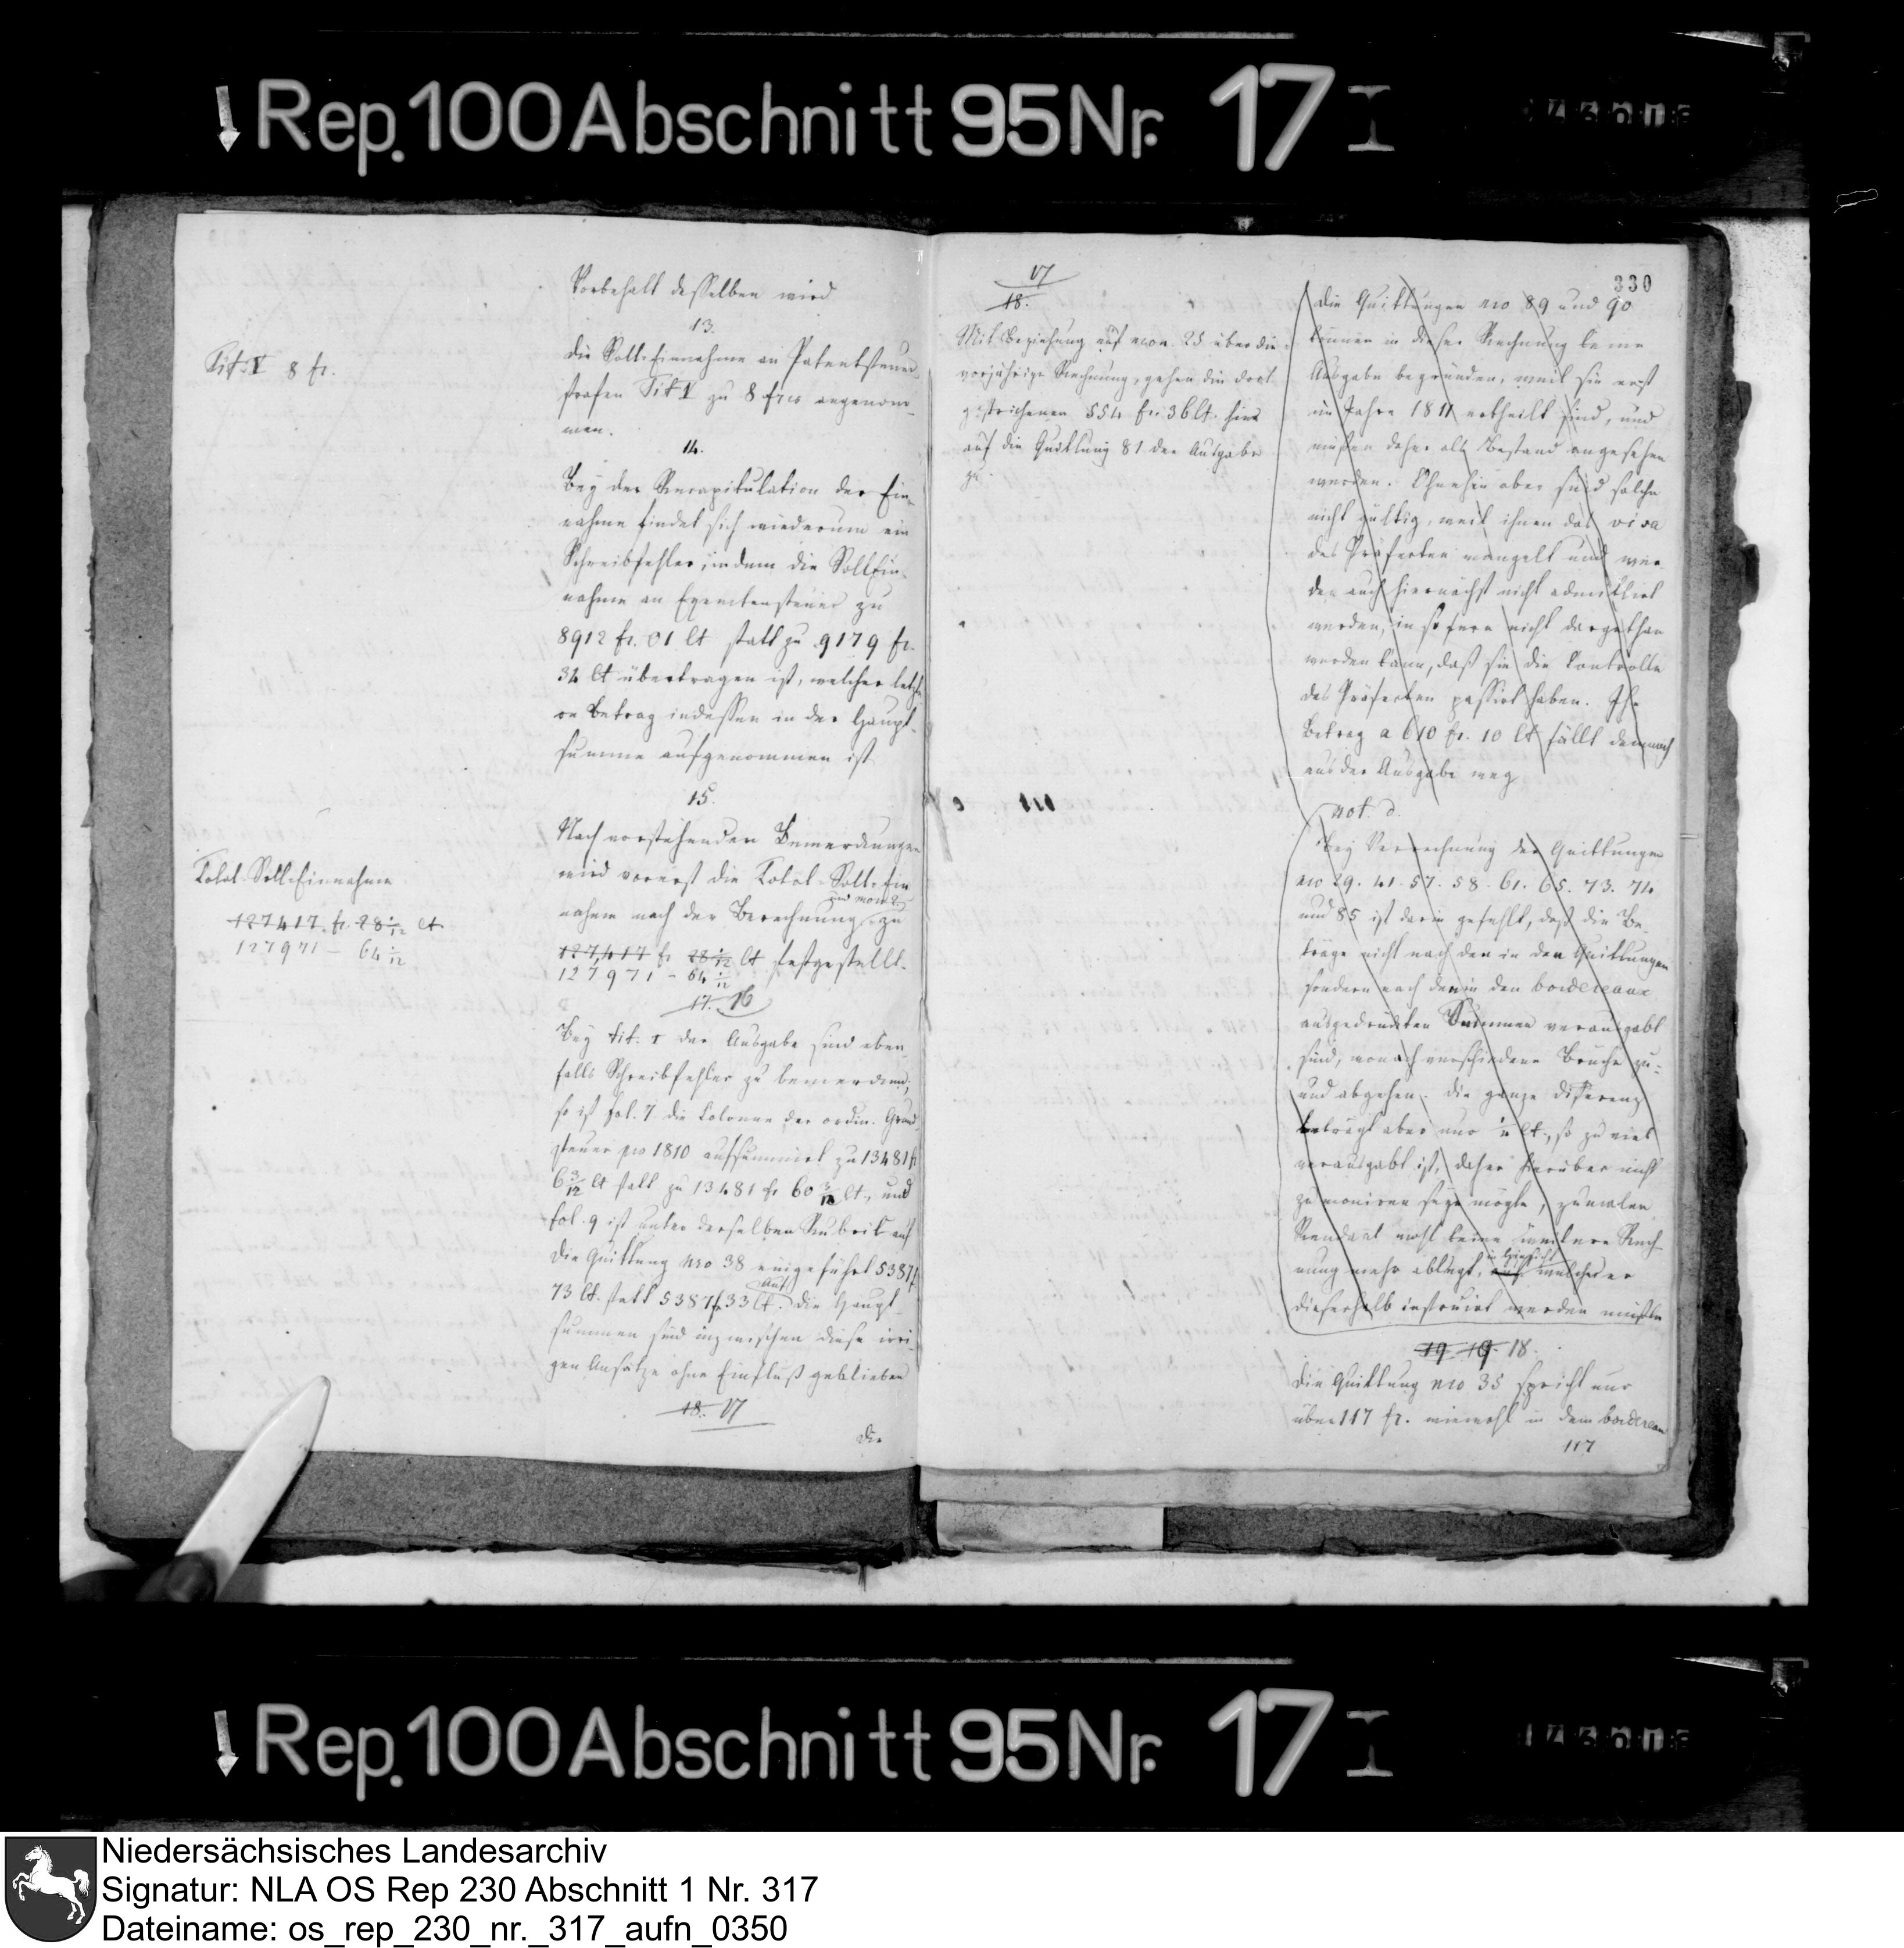 Rep. 100 Abschnitt 95 Nr. 17 I
Vorbehalt desselben wird
13.
Tit: V 8 fr.
Die Soll-Einnahme an Patentsteuer
strafen Tit V zu 8 frcs angenom-
men.
14.
Bey der Recapitulation der Ein-
nahme findet sich wiederum ein
Schreibfehler, indem die Soll Ein-
nahme an Exemtensteuer zu
8912 fr. 01 Ct statt zu 9179 fr.
34 Ct übertragen ist, welcher letzte-
re Betrag indessen in der Haupt-
summe aufgenommen ist
15.
Nach vorstehenden Bemerkungen
wird vorerst die Total-Soll-Ein
nahme nach der Berechnung und mon 2 zu
127,417 fr 28 1/12 Ct festgestellt.
127971 - 64 1/12
Total-Soll-Einnahme
127417 fr. 28 1/12 Ct
127971 - 64 1/12
17. 16
Bey tit. I der Ausgabe sind eben-
falls Schreibfehler zu bemerken;
so ist fol. 7 die Colonne der ordin. Grund
steuer pro 1810 aufsummirt zu 13481 fr
6 3/12 Ct statt zu 13481 fr 60 3/12 Ct., und
fol. 9 ist unter derselben Rubrik auf
die Quittung nro 38 eingeführt 5387 f
73 Ct. statt 5387 f 33 Ct. Auf die Haupt-
summen sind inzwischen diese irri-
gen Ansätze ohne Einfluß geblieben
18. 17
Die
17
18.
Mit Beziehung auf mon. 25 über die
vorjährige Rechnung, gehen die dort
gestrichenen 554 fr. 36 Ct. hier
auf die Quittung 81 der Ausgabe
zu.
330
Die Quittungen nro 89 und 90
können in dieser Rechnung keine
Ausgabe begründen, weil sie erst
im Jahre 1811 ertheilt sind, und
müßen daher als Bestand angesehen
werden. Ohnehin aber sind solche
nicht gültig, weil ihnen das visa
des Präfecten mangelt und wer-
den auch hiernächst nicht admittirt
werden, in so fern nicht dargethan
werden kann, daß sie die Controlle
des Präfecten passirt haben. Ihr
Betrag a 610 fr. 10 Ct fällt demnach
aus der Ausgabe weg
not. d.
Bey Verrechnung der Quittungen
nro 29. 41. 57. 58. 61. 65. 73. 74
und 85 ist darin gefehlt, daß die Be-
träge nicht nach den in den Quittungen
sondern nach den in den bordereaux
ausgedruckten Summen verausgabt
sind, wonach verschiedene Brüche zu-
und abgehen. Die ganze Differenz
beträgt aber nur Ct., so zu viel
verausgabt ist, daher hierüber nicht
zu moniren seyn mögte, zumalen
Rendant wohl keine weitere Rech-
nung mehr ablegt, auf in Hinsicht welcher er
dieserhalb instruirt werden müßte
19 19 18.
Die Quittung nro 35 spricht nur
über 117 fr. wiewohl in dem bordereau
117
Rep. 100 Abschnitt 95 Nr. 17 I
Niedersächsisches Landesarchiv
Signatur: NLA OS Rep 230 Abschnitt 1 Nr. 317
Dateiname: os_rep_230_nr._317_aufn_0350